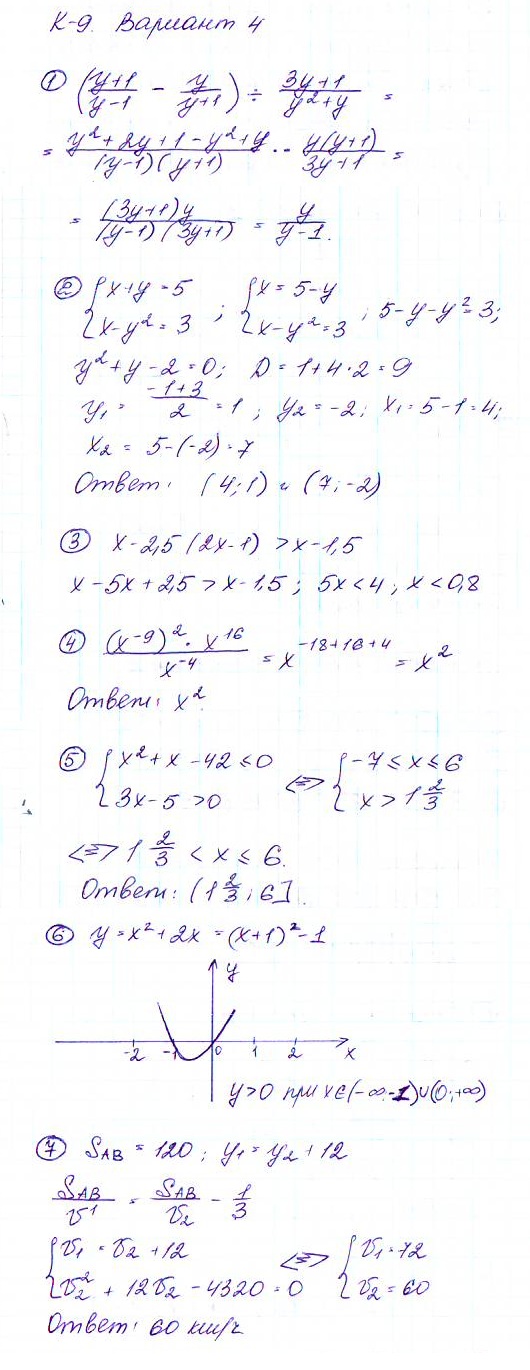 К-9. Вариант 4
① ((y+1)/(y-1) - y/(y+1)) ÷ (3y+1)/(y²+y) =
= (y²+2y+1-y²+y)/((y-1)(y+1)) · (y(y+1))/(3y+1) =
= ((3y+1)y)/((y-1)(3y+1)) = y/(y-1).
② {x+y=5 {x=5-y
{x-y²=3 ; {x-y²=3 ; 5-y-y²=3;
y²+y-2=0; D=1+4·2=9
y₁= (-1+3)/2 =1 ; y₂=-2; x₁=5-1=4;
x₂= 5-(-2)=7
Ответ: (4;1) и (7;-2)
③ x-2,5(2x-1) >x-1,5
x-5x+2,5>x-1,5; 5x<4; x<0,8
④ ((x⁻⁹)²·x¹⁶)/x⁻⁴ = x⁻¹⁸⁺¹⁶⁺⁴ = x²
Ответ: x².
⑤ {x²+x-42≤0 {-7≤x≤6
{3x-5>0 <=> {x>1 2/3
<=> 1 2/3 <x≤6.
Ответ: (1 2/3; 6].
⑥ y=x²+2x=(x+1)²-1
y
-2 -1 0 1 2 x
y>0 при x∈(-∞;-1)∪(0;+∞)
⑦ S_AB = 120; y₁=y₂+12
S_AB/v¹ = S_AB/v₂ - 1/3
{v₁=v₂+12 {v₁=72
{v₂²+12v₂-4320=0 <=> {v₂=60
Ответ: 60 км/ч